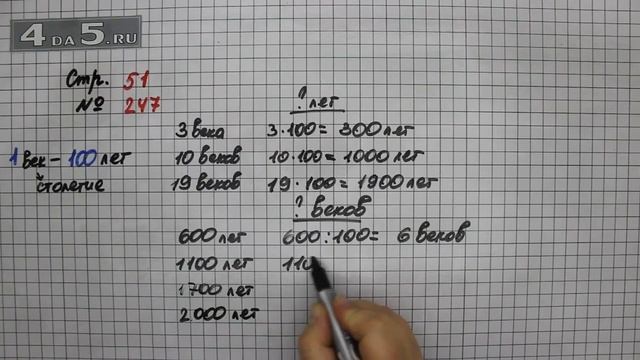 4DA5.RU
Стр. 51
№ 247
? лет
3 века 3·100= 300 лет
1 век - 100 лет 10 веков 10·100= 1000 лет
столетие 19 веков 19·100= 1900 лет
? веков
600 лет 600:100= 6 веков
1100 лет 110
1700 лет
2000 лет